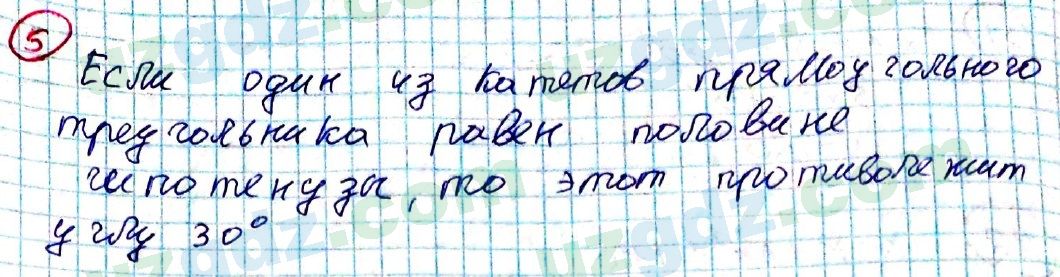 5
Если один из катетов прямоугольного
треугольника равен половине
гипотенузы, то этот противолежит
углу 30°